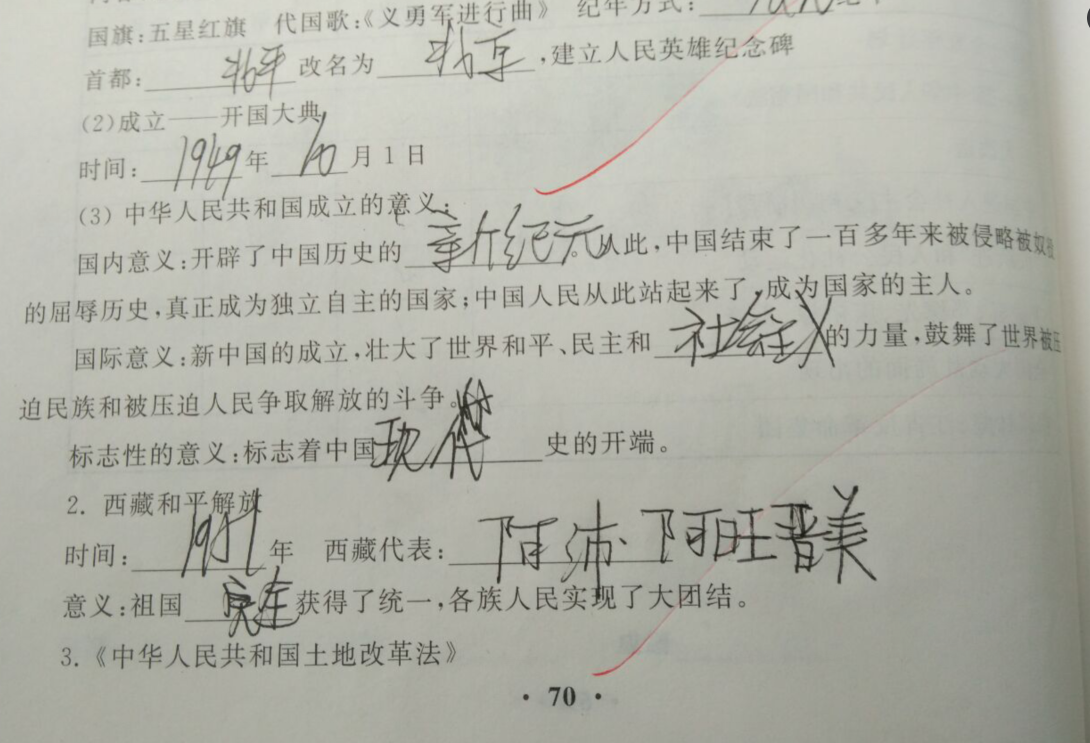 国旗:五星红旗 代国歌:《义勇军进行曲》 纪年方式:
首都: 北平 改名为 北京 ,建立人民英雄纪念碑
(2)成立——开国大典
时间: 1949 年 10 月 1 日
(3) 中华人民共和国成立的意义:
国内意义:开辟了中国历史的 新纪元 。从此,中国结束了一百多年来被侵略被奴役
的屈辱历史,真正成为独立自主的国家;中国人民从此站起来了,成为国家的主人。
国际意义:新中国的成立,壮大了世界和平、民主和 社会主义 的力量,鼓舞了世界被压
迫民族和被压迫人民争取解放的斗争。
标志性的意义:标志着中国 现代 史的开端。
2. 西藏和平解放
时间: 1951 年 西藏代表: 阿沛·阿旺晋美
意义:祖国 获得了统一,各族人民实现了大团结。
3.《中华人民共和国土地改革法》
· 70 ·